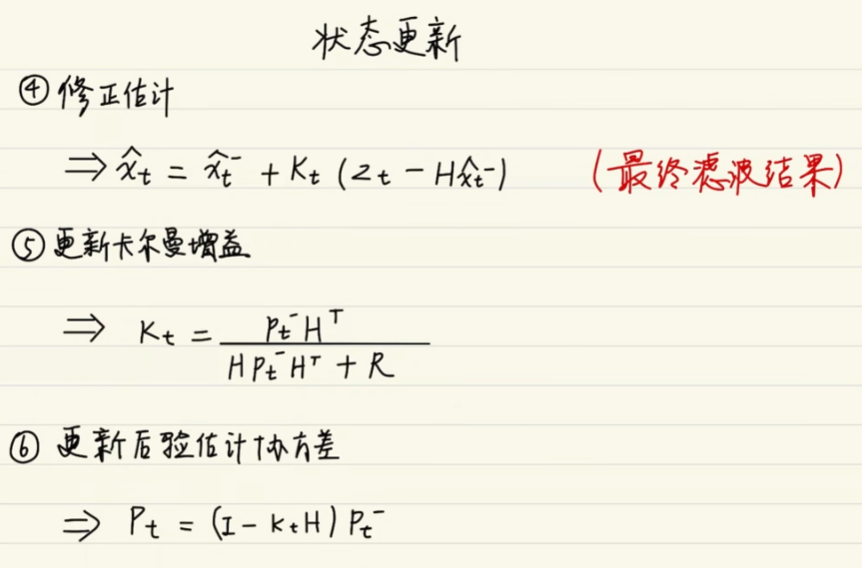 状态更新
④ 修正估计
⇒ x̂ₜ = x̂ₜ⁻ + Kₜ (zₜ − Hx̂ₜ⁻) (最终滤波结果)
⑤ 更新卡尔曼增益
⇒ Kₜ = Pₜ⁻Hᵀ / HPₜ⁻Hᵀ + R
⑥ 更新后验估计协方差
⇒ Pₜ = (I − KₜH) Pₜ⁻